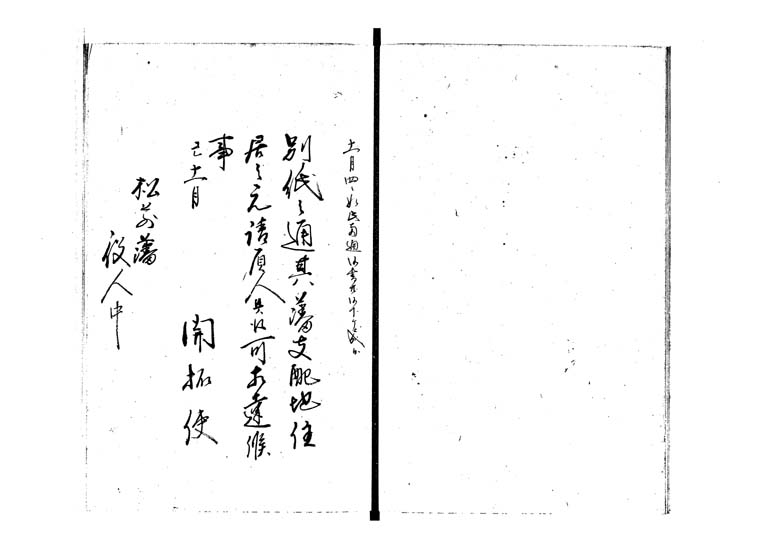 十一月四日
別紙之通其藩支配地住
居之元請負人共江可相達候
事
巳十一月
開拓使
松前藩
役人中